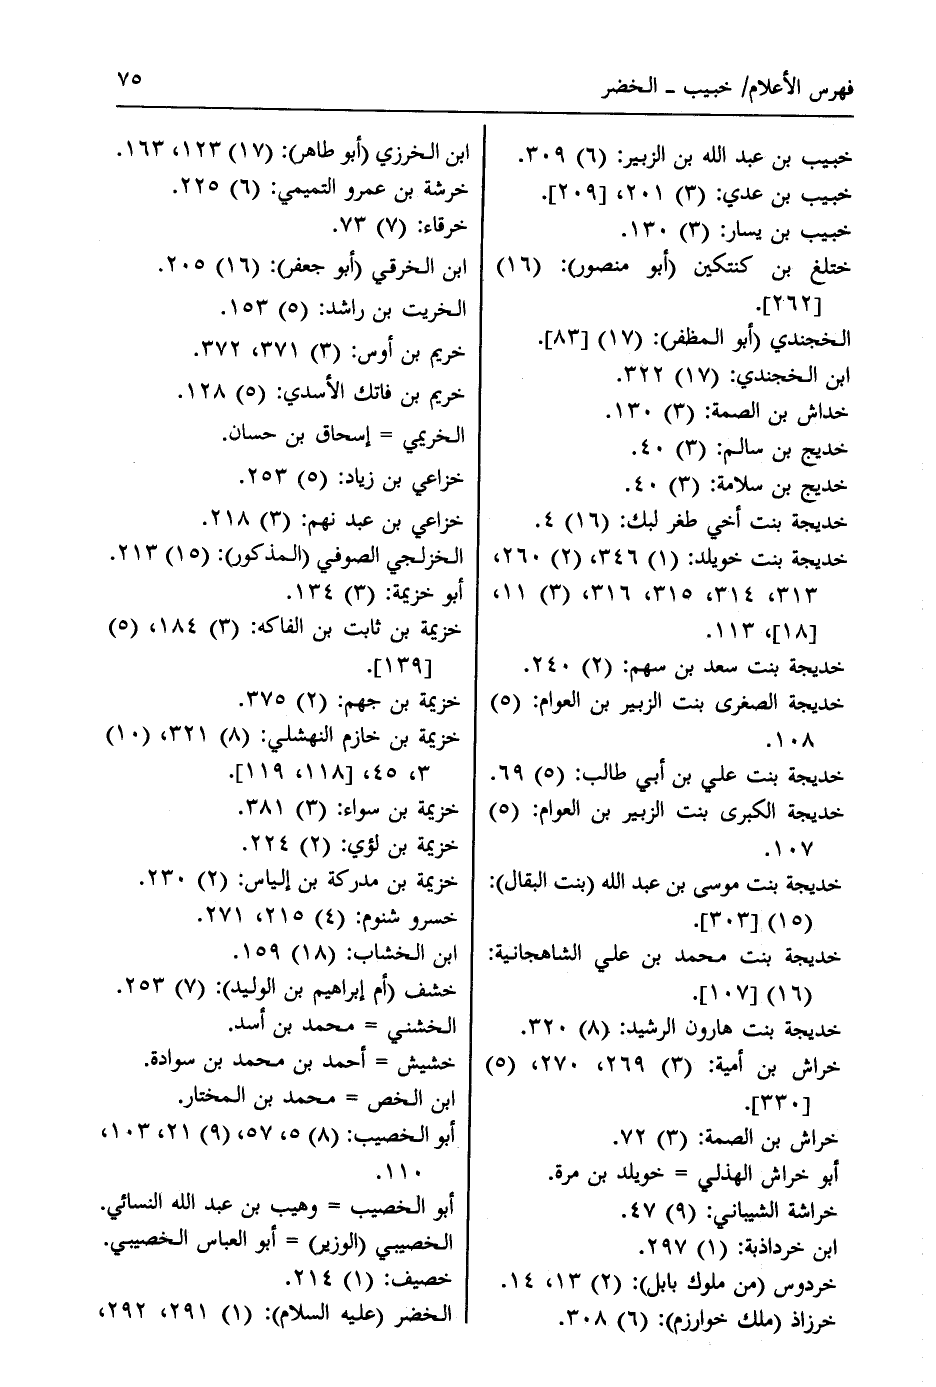 فهرس الأعلام/ خبيب ـ الخضر
٧٥
خبيب بن عبد الله بن الزبير: (٦) ٣٠٩.
خبيب بن عدي: (٣) ٢٠١، [٢٠٩].
خبيب بن يسار: (٣) ١٣٠.
ختلغ بن كنتكين (أبو منصور): (١٦)
[٢٦٢].
الخجندي (أبو المظفر): (١٧) [٨٣].
ابن الخجندي: (١٧) ٣٢٢.
خداش بن الصمة: (٣) ١٣٠.
خديج بن سالم: (٣) ٤٠.
خديج بن سلامة: (٣) ٤٠.
خديجة بنت أخي طغر لبك: (١٦) ٤.
خديجة بنت خويلد: (١) ٣٤٦، (٢) ٢٦٠،
٣١٣، ٣١٤، ٣١٥، ٣١٦، (٣) ١١،
[١٨]، ١١٣.
خديجة بنت سعد بن سهم: (٢) ٢٤٠.
خديجة الصغرى بنت الزبير بن العوام: (٥)
١٠٨.
خديجة بنت علي بن أبي طالب: (٥) ٦٩.
خديجة الكبرى بنت الزبير بن العوام: (٥)
١٠٧.
خديجة بنت موسى بن عبد الله (بنت البقال):
(١٥) [٣٠٣].
خديجة بنت محمد بن علي الشاهجانية:
(١٦) [١٠٧].
خديجة بنت هارون الرشيد: (٨) ٣٢٠.
خراش بن أمية: (٣) ٢٦٩، ٢٧٠، (٥)
[٣٣٠].
خراش بن الصمة: (٣) ٧٢.
أبو خراش الهذلي = خويلد بن مرة.
خراشة الشيباني: (٩) ٤٧.
ابن خرداذبة: (١) ٢٩٧.
خردوس (من ملوك بابل): (٢) ١٣، ١٤.
خرزاذ (ملك خوارزم): (٦) ٣٠٨.
ابن الخرزي (أبو طاهر): (١٧) ١٢٣، ١٦٣.
خرشة بن عمرو التميمي: (٦) ٢٢٥.
خرقاء: (٧) ٧٣.
ابن الخرقي (أبو جعفر): (١٦) ٢٠٥.
الخريت بن راشد: (٥) ١٥٣.
خريم بن أوس: (٣) ٣٧١، ٣٧٢.
خريم بن فاتك الأسدي: (٥) ١٢٨.
الخريمي = إسحاق بن حسان.
خزاعي بن زياد: (٥) ٢٥٣.
خزاعي بن عبد نهم: (٣) ٢١٨.
الخزلجي الصوفي (المذكور): (١٥) ٢١٣.
أبو خزيمة: (٣) ١٣٤.
خزيمة بن ثابت بن الفاكه: (٣) ١٨٤، (٥)
[١٣٩].
خزيمة بن جهم: (٢) ٣٧٥.
خزيمة بن خازم النهشلي: (٨) ٣٢١، (١٠)
٣، ٤٥، [١١٨، ١١٩].
خزيمة بن سواء: (٣) ٣٨١.
خزيمة بن لؤي: (٢) ٢٢٤.
خزيمة بن مدركة بن إلياس: (٢) ٢٣٠.
خسرو شنوم: (٤) ٢١٥، ٢٧١.
ابن الخشاب: (١٨) ١٥٩.
خشف (أم إبراهيم بن الوليد): (٧) ٢٥٣.
الخشني = محمد بن أسد.
خشيش = أحمد بن محمد بن سوادة.
ابن الخص = محمد بن المختار.
أبو الخصيب: (٨) ٥، ٥٧، (٩) ٢١، ١٠٣،
١١٠.
أبو الخصيب = وهيب بن عبد الله النسائي.
الخصيبي (الوزير) = أبو العباس الخصيبي.
خصيف: (١) ٢١٤.
الخضر (عليه السلام): (١) ٢٩١، ٢٩٢،